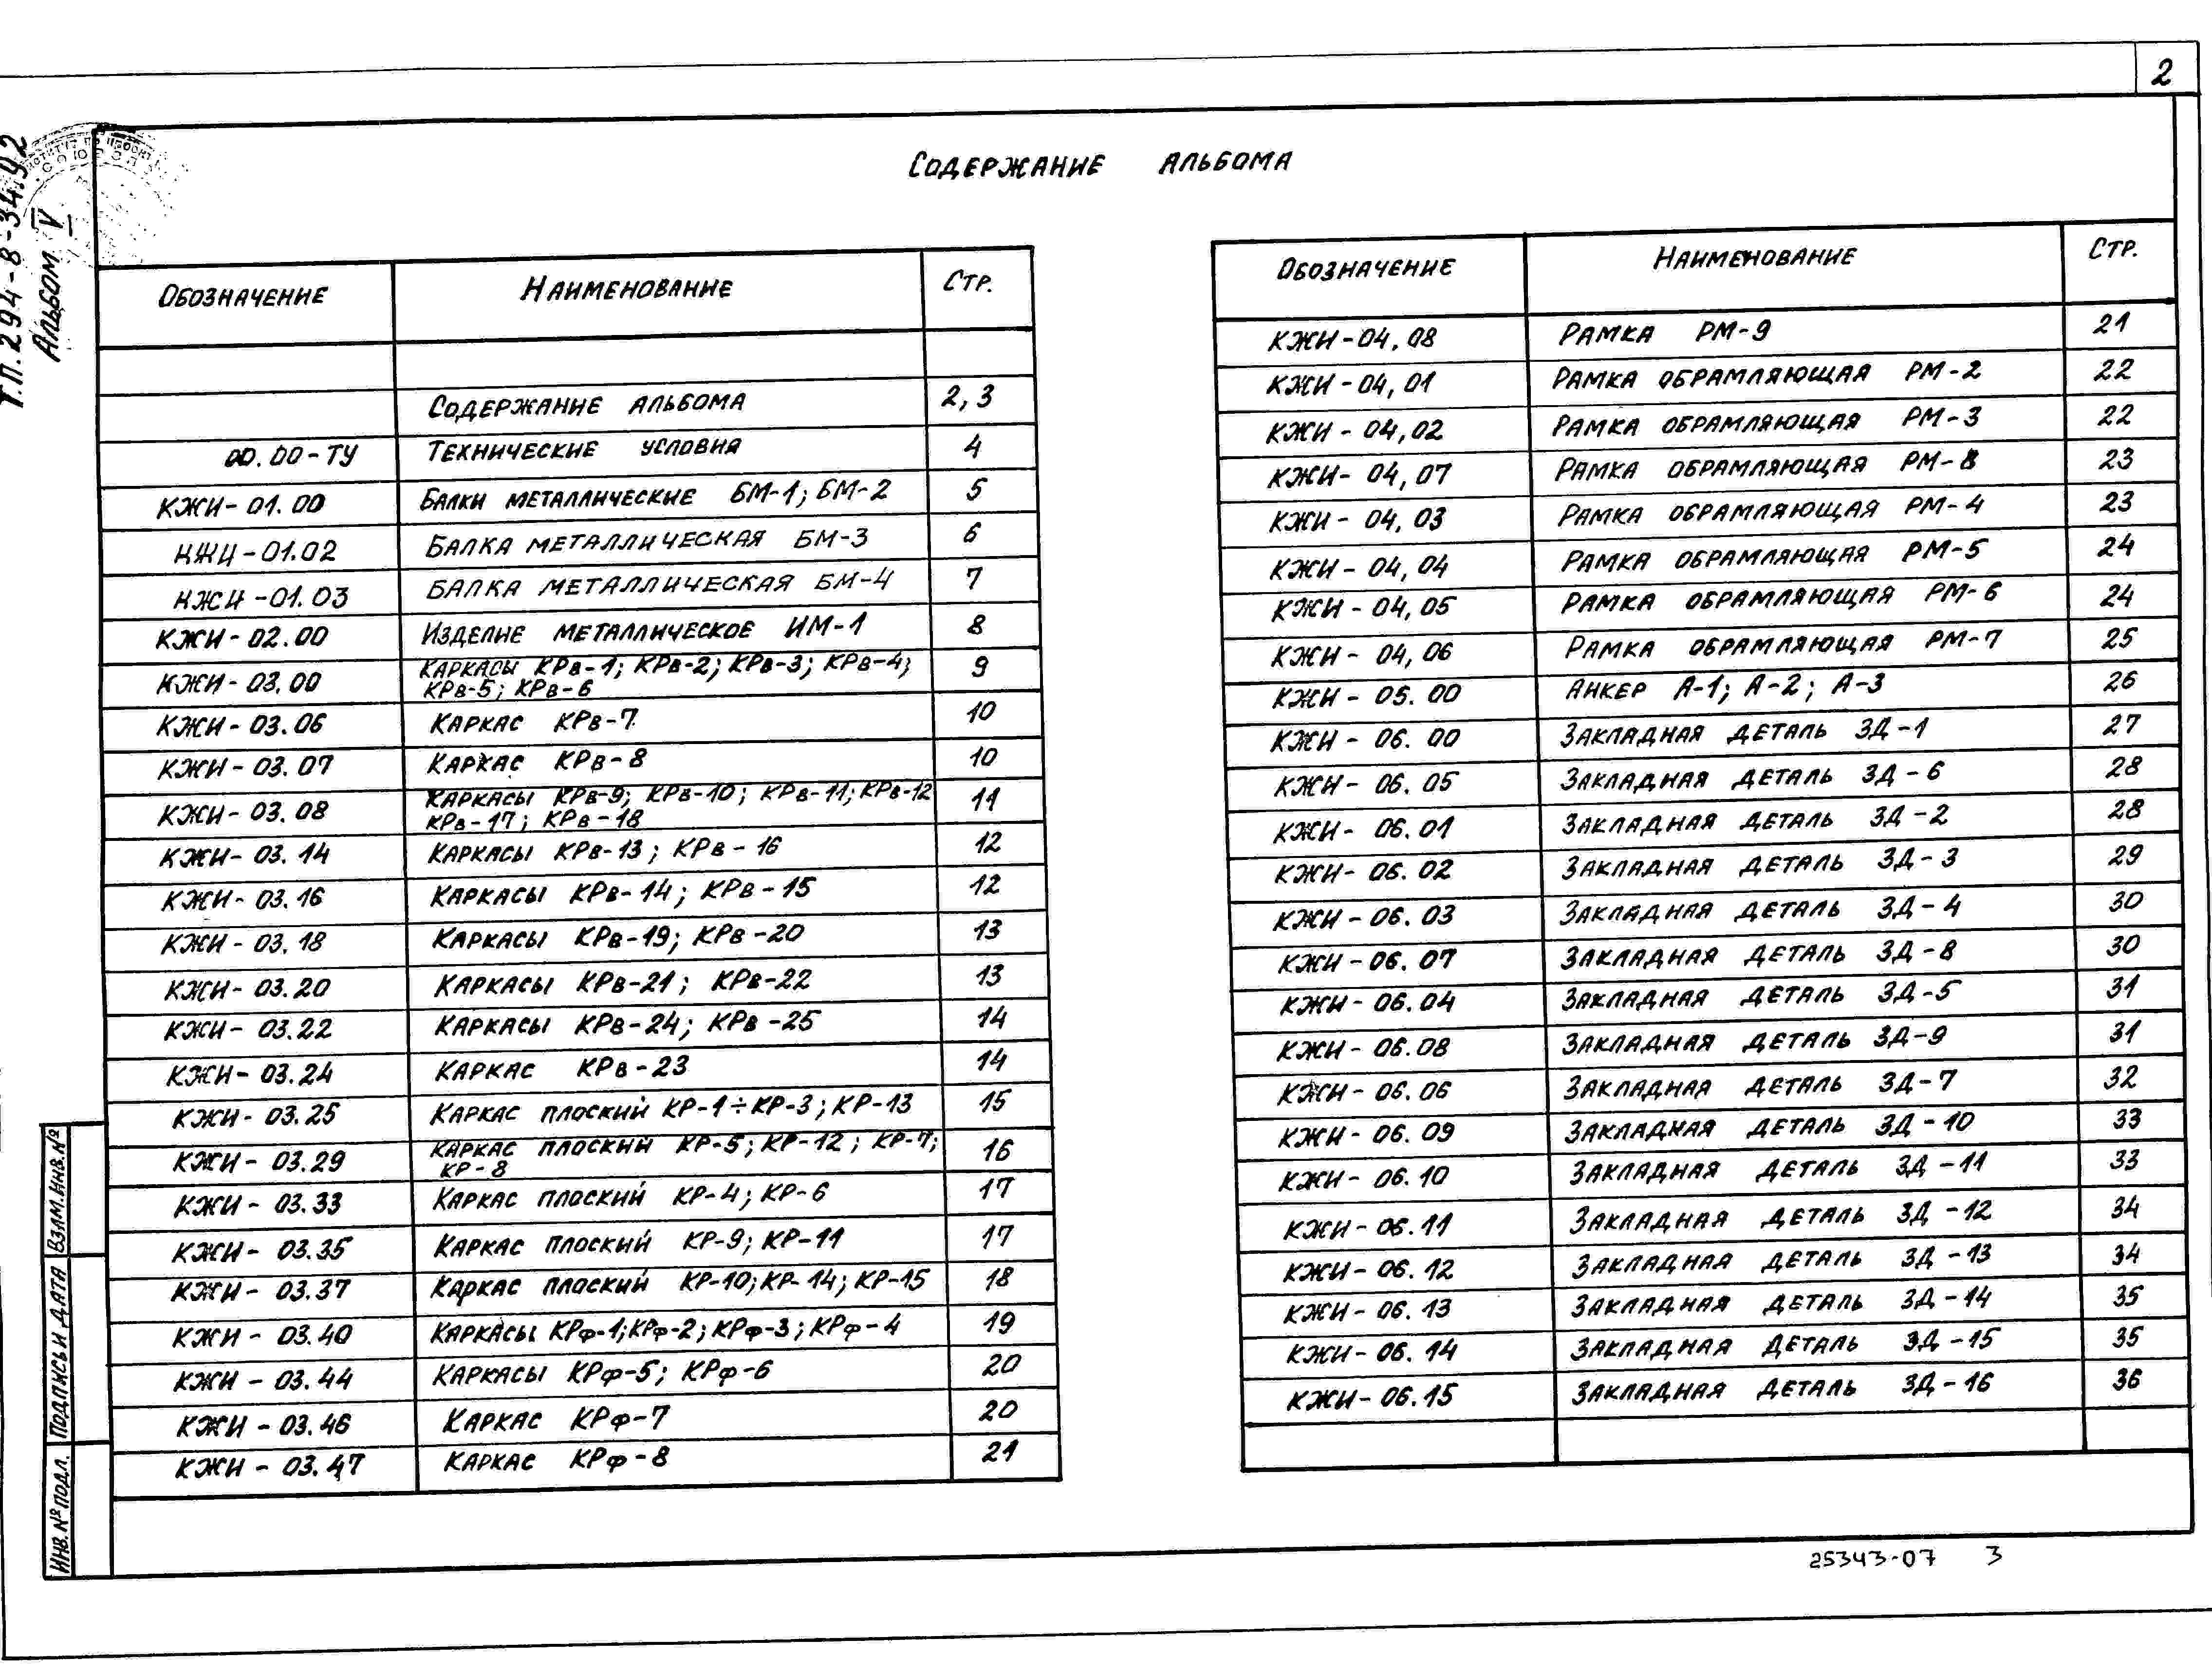 2
Т.П. 294-8-34.92
Альбом IV
Содержание альбома
Обозначение Наименование Стр.
Содержание альбома 2, 3
00.00-ТУ Технические условия 4
КЖИ-01.00 Балки металлические БМ-1; БМ-2 5
КЖИ-01.02 Балка металлическая БМ-3 6
КЖИ-01.03 Балка металлическая БМ-4 7
КЖИ-02.00 Изделие металлическое ИМ-1 8
КЖИ-03.00 Каркасы КРв-1; КРв-2; КРв-3; КРв-4; 9
КРв-5; КРв-6
КЖИ-03.06 Каркас КРв-7 10
КЖИ-03.07 Каркас КРв-8 10
КЖИ-03.08 Каркасы КРв-9; КРв-10; КРв-11; КРв-12 11
КРв-17; КРв-18
КЖИ-03.14 Каркасы КРв-13; КРв-16 12
КЖИ-03.16 Каркасы КРв-14; КРв-15 12
КЖИ-03.18 Каркасы КРв-19; КРв-20 13
КЖИ-03.20 Каркасы КРв-21; КРв-22 13
КЖИ-03.22 Каркасы КРв-24; КРв-25 14
КЖИ-03.24 Каркас КРв-23 14
КЖИ-03.25 Каркас плоский КР-1÷КР-3; КР-13 15
КЖИ-03.29 Каркас плоский КР-5; КР-12; КР-7; 16
КР-8
КЖИ-03.33 Каркас плоский КР-4; КР-6 17
КЖИ-03.35 Каркас плоский КР-9; КР-11 17
КЖИ-03.37 Каркас плоский КР-10; КР-14; КР-15 18
КЖИ-03.40 Каркасы КРф-1; КРф-2; КРф-3; КРф-4 19
КЖИ-03.44 Каркасы КРф-5; КРф-6 20
КЖИ-03.46 Каркас КРф-7 20
КЖИ-03.47 Каркас КРф-8 21
Обозначение Наименование Стр.
КЖИ-04,08 Рамка РМ-9 21
КЖИ-04,01 Рамка обрамляющая РМ-2 22
КЖИ-04,02 Рамка обрамляющая РМ-3 22
КЖИ-04,07 Рамка обрамляющая РМ-8 23
КЖИ-04,03 Рамка обрамляющая РМ-4 23
КЖИ-04,04 Рамка обрамляющая РМ-5 24
КЖИ-04,05 Рамка обрамляющая РМ-6 24
КЖИ-04,06 Рамка обрамляющая РМ-7 25
КЖИ-05.00 Анкер А-1; А-2; А-3 26
КЖИ-06.00 Закладная деталь ЗД-1 27
КЖИ-06.05 Закладная деталь ЗД-6 28
КЖИ-06.01 Закладная деталь ЗД-2 28
КЖИ-06.02 Закладная деталь ЗД-3 29
КЖИ-06.03 Закладная деталь ЗД-4 30
КЖИ-06.07 Закладная деталь ЗД-8 30
КЖИ-06.04 Закладная деталь ЗД-5 31
КЖИ-06.08 Закладная деталь ЗД-9 31
КЖИ-06.06 Закладная деталь ЗД-7 32
КЖИ-06.09 Закладная деталь ЗД-10 33
КЖИ-06.10 Закладная деталь ЗД-11 33
КЖИ-06.11 Закладная деталь ЗД-12 34
КЖИ-06.12 Закладная деталь ЗД-13 34
КЖИ-06.13 Закладная деталь ЗД-14 35
КЖИ-06.14 Закладная деталь ЗД-15 35
КЖИ-06.15 Закладная деталь ЗД-16 36
Взам.инв.№
Подпись и дата
Инв.№ подл.
25343-07 3